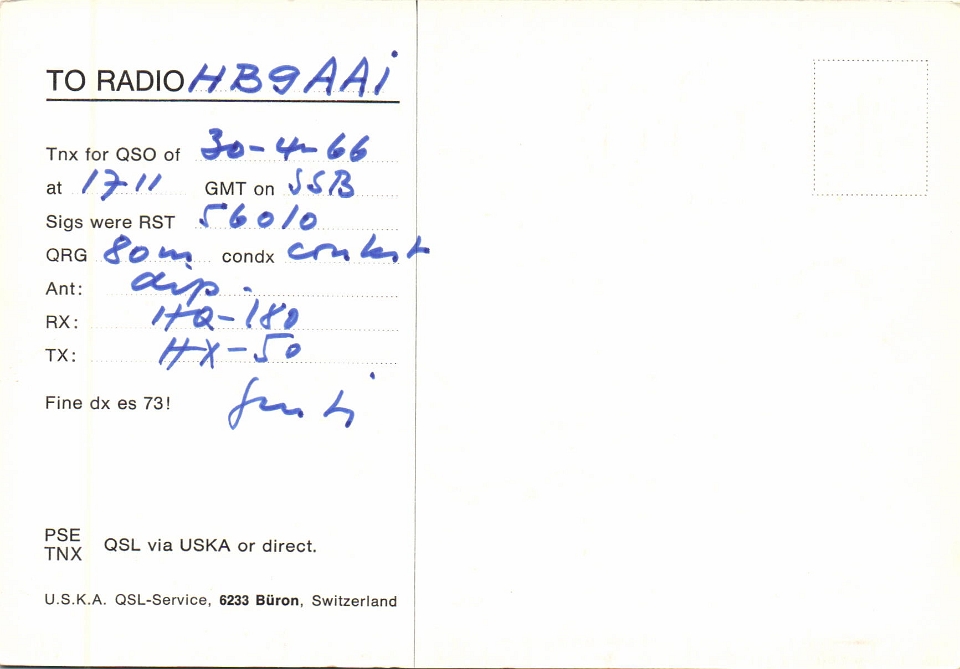 TO RADIO HB9AAi
Tnx for QSO of 30-4-66
at 1711 GMT on SSB
Sigs were RST 56010
QRG 80m condx contest
Ant: dip.
RX: HQ-180
TX: HX-50
Fine dx es 73!
PSE
TNX QSL via USKA or direct.
U.S.K.A. QSL-Service, 6233 Büron, Switzerland